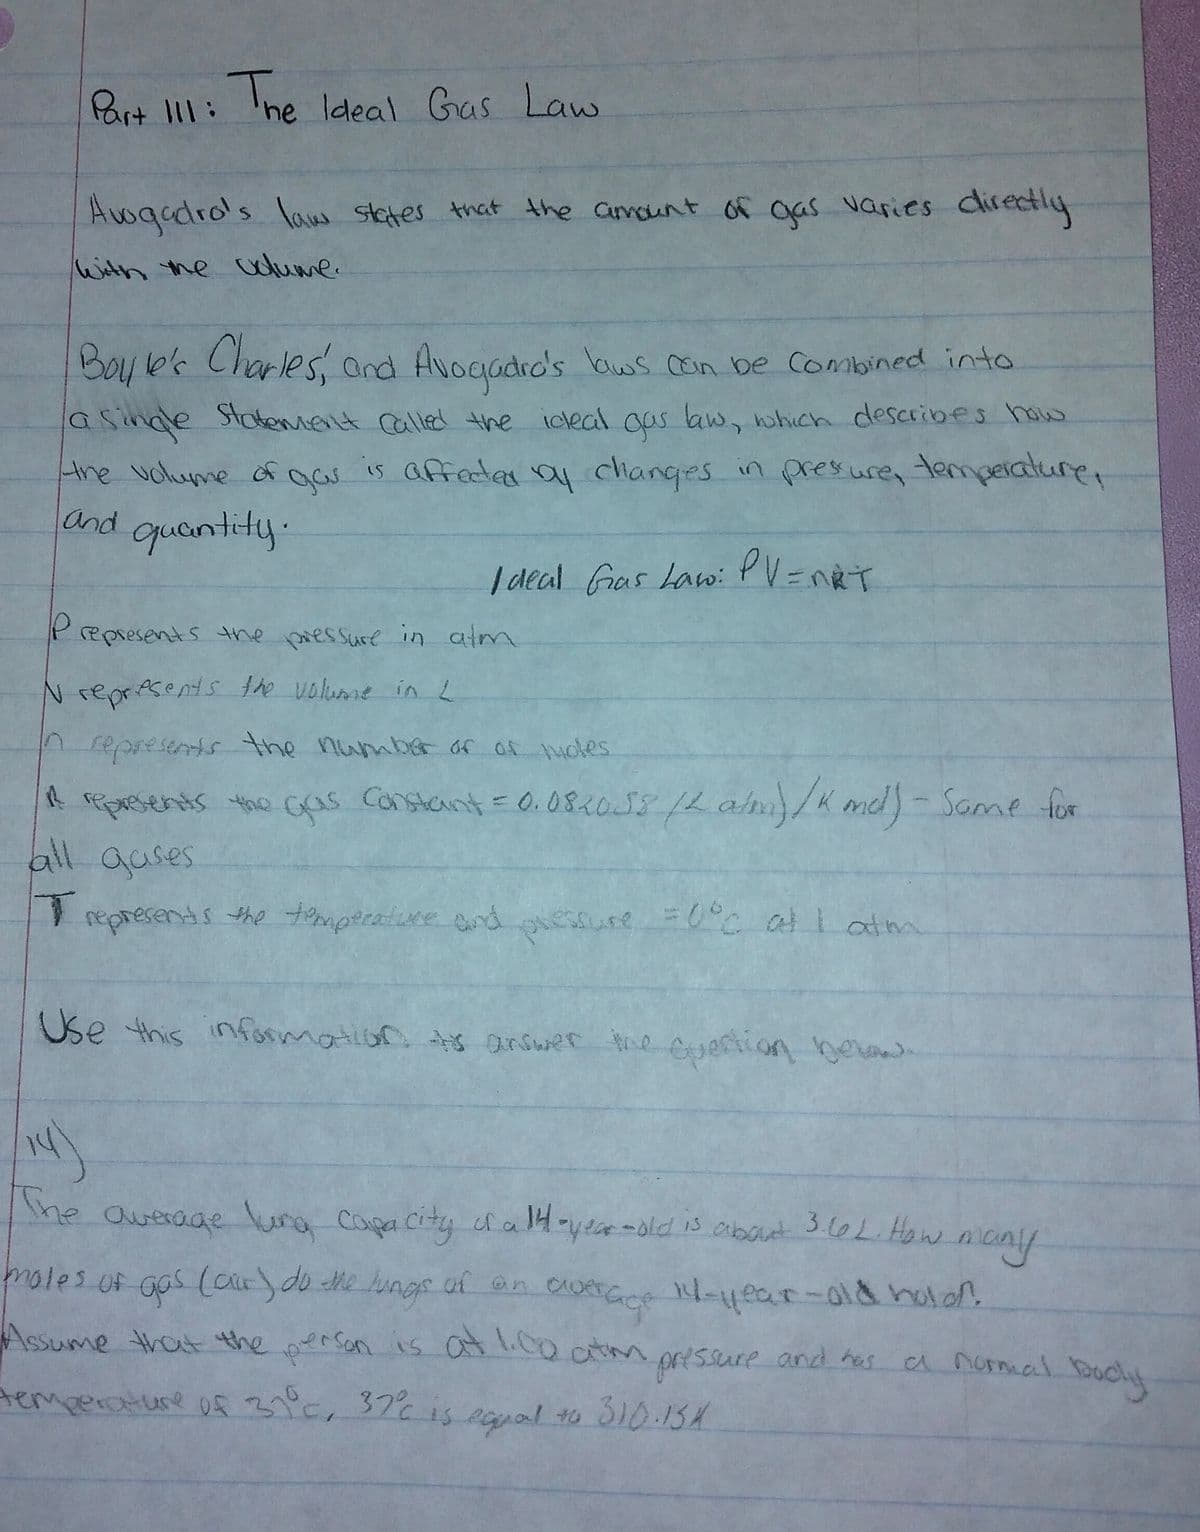 Part III: The Ideal Gas Law
Avogadro's law states that the amount of gas varies directly
with the volume.
Boyle's Charles', and Avogadro's laws can be Combined into
a single Statement Called the ideal gas law, which describes how
the volume of gas is affected by changes in presure, temperature,
and quantity.
Ideal Gas Law: PV=nRT
P represents the pressure in atm
V represents the volume in L
n represents the number of of moles
R represents the gas Constant = 0.082058 (L atm)/K mol) - Same for
all gases
T represents the temperature and pressure = 0°C at 1 atm
Use this information to answer the question below.
14)
The average lung capacity of a 14-year-old is about 3.6 L. How many
moles of gas (air) do the lungs of an average 14-year-old hold?
Assume that the person is at 1.00 atm pressure and has a normal body
temperature of 37°C, 37°C is equal to 310.15K